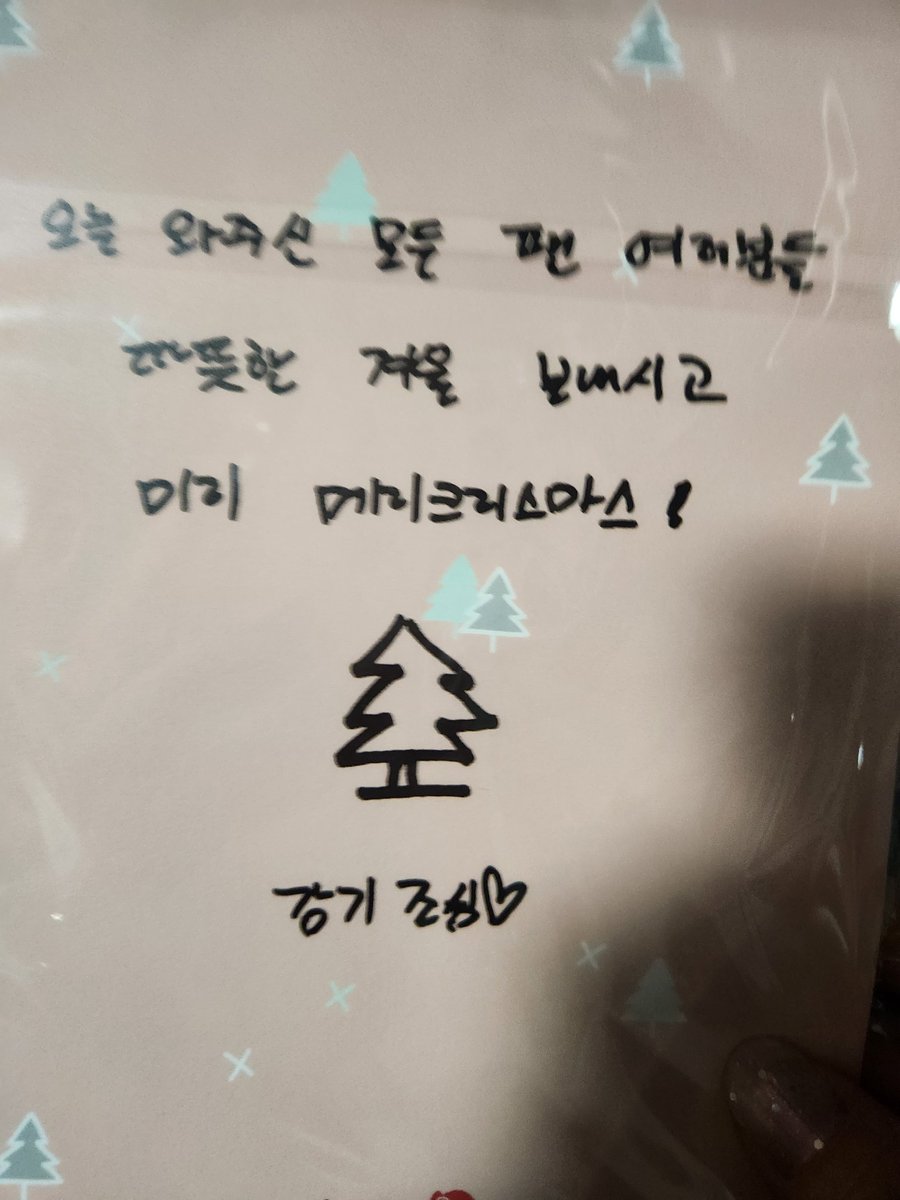 오늘 와주신 모든 팬 여러분들
따뜻한 겨울 보내시고
미리 메리크리스마스!
감기 조심♡